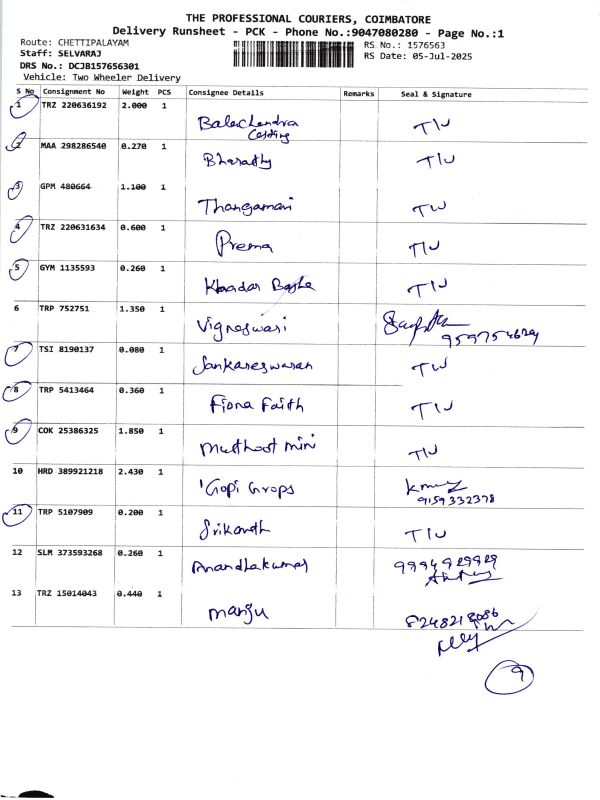 THE PROFESSIONAL COURIERS, COIMBATORE
Delivery Runsheet - PCK - Phone No.:9047080280 - Page No.:1
Route: CHETTIPALAYAM RS No.: 1576563
Staff: SELVARAJ RS Date: 05-Jul-2025
DRS No.: DCJB157656301
Vehicle: Two Wheeler Delivery
S No Consignment No Weight PCS Consignee Details Remarks Seal & Signature
1 TRZ 220636192 2.000 1
Balachandra T/U
Casting
2 MAA 298286540 0.270 1
Bharathy T/U
3 GPM 480664 1.100 1
Thangamani T/U
4 TRZ 220631634 0.600 1
Prema T/U
5 GYM 1135593 0.260 1
Khadar Basha T/U
6 TRP 752751 1.350 1
Vigneswari
9597754629
7 TSI 8190137 0.080 1
Sankareswaran T/U
8 TRP 5413464 0.360 1
Fiona Faith T/U
9 COK 25386325 1.850 1
Muthoot mini T/U
10 HRD 389921218 2.430 1
Gopi Grops
9159332378
11 TRP 5107909 0.200 1
Srikanth T/U
12 SLM 373593268 0.260 1
Anandhakumar 9994929929
13 TRZ 15014043 0.440 1
manju 8248218086
9